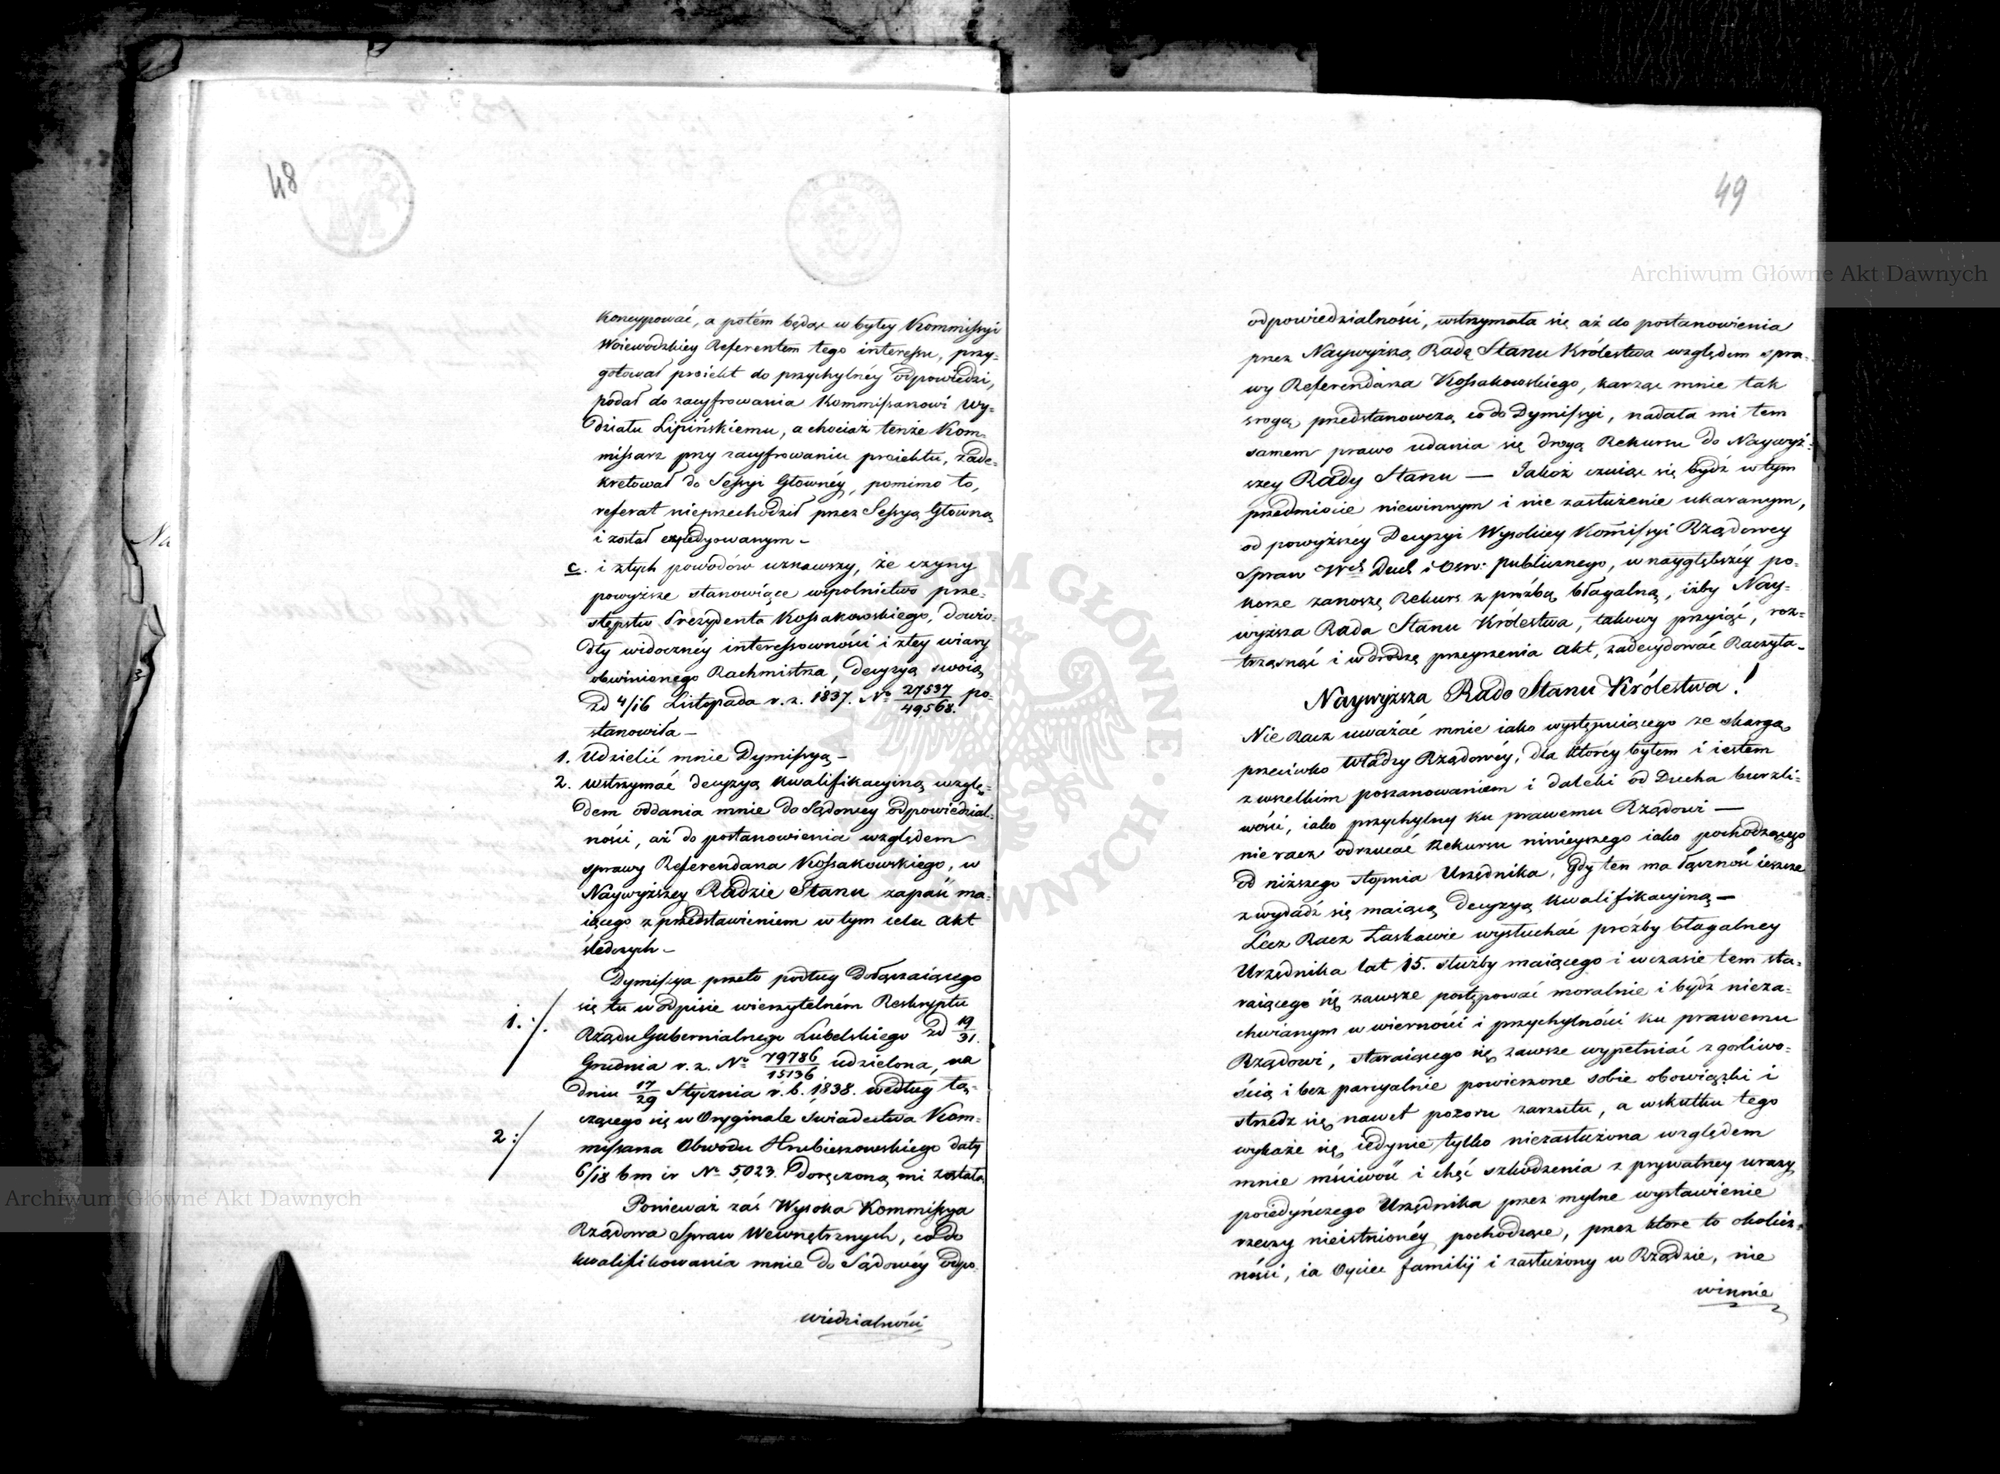 48
koncypować, a potém będąc w byłey Kommissyi
Woiewodzkiey Referentem tego interessu, przy-
gotował proiekt do przychylnéy odpowiedzi,
podał do zacyfrowania Kommissarzowi Wy-
działu Lipińskiemu, a chociaż tenże Kom-
missarz przy zacyfrowaniu proiektu, zade-
kretował do Sessyi Główney, pomimo to,
referat nieprzechodził przez Sessyą Główną
i został expedyowanym –
c. i z tych powodów uznawszy, że czyny
powyższe stanowiące wspólnictwo prze-
stępstw Prezydenta Kossakowskiego, dowio-
dły widoczney interessowności i złey wiary
obwinionego Rachmistrza, decyzyą swoią
zd 4/16 Listopada r. z. 1837. No 27537/49,568. po-
stanowiła –
1. Udzielić mnie Dymissyą –
2. wstrzymać decyzyą kwalifikacyiną wzglę-
dem oddania mnie do Sądowey odpowiedzial-
ności, aż do postanowienia względem
sprawy Referendarza Kossakowskiego, w
Naywyższey Radzie Stanu zapaść ma-
iącego z przedstawieniem w tym celu akt
śledczych –
Dymissya przeto podług Dołączaiącego
1. :/. się tu w odpisie wierzytelném Reskryptu
Rządu Gubernialnego Lubelskiego zd 19/31.
Grudnia r. z. No 79786/15136 udzielona, na
dniu 17/29 Stycznia r. b. 1838. według łą-
2 :/ czącego się w Oryginale Swiadectwa Kom-
missarza Obwodu Hrubieszowskiego daty
6/18 bm ir No 5,023. Doręczoną mi została
Ponieważ zaś Wysoka Kommissya
Rządowa Spraw Wewnętrznych, co do
kwalifikowania mnie do Sądowéy odpo-
wiedzialności
49
odpowiedzialności, wstrzymała się aż do postanowienia
przez Naywyższą Radę Stanu Królestwa względem spra-
wy Referendarza Kossakowskiego, karząc mnie tak
srogą, przedstanowczą co do Dymissyi, nadała mi tem
samem prawo udania się drogą Rekursu do Naywyż-
szey Rady Stanu — Jakoż czuiąc się bydź w tym
przedmiocie niewinnym i nie zasłużenie ukaranym,
od powyższéy Decyzyi Wysokiey Kommissyi Rządowey
Spraw Wch Duch i Ośw. publicznego, w naygłębszéy po-
korze zanoszę Rekurs z prośbą błagalną, iżby Nay-
wyższa Rada Stanu Królestwa, takowy przyiąć, roz-
trząsnąć i w drodze przeyrzenia akt, zadecydować Raczyła –
Naywyższa Rado Stanu Królestwa!
Nie Racz uważać mnie iako występuiącego ze skargą
przeciwko władzy Rządowéy, dla którey byłem i iestem
z wszelkim poszanowaniem i daleki od Ducha burzli-
wości, iako przychylny ku prawemu Rządowi —
nie racz odrzucać Rekursu ninieyszego iako pochodzącego
od niższego stopnia Urzędnika, gdy ten ma łączność ieszcze
z wydadź się maiącą decyzyą kwalifikacyiną —
Lecz Racz Łaskawie wysłuchać proźby błagalney
Urzędnika lat 15. służby maiącego i w czasie tem sta-
raiącego się zawsze postępować moralnie i bydź nieza-
chwianym w wierności i przychylności ku prawemu
Rządowi, staraiącego się zawsze wypełniać z gorliwo-
ścią i bez parcyalnie powierzone sobie obowiązki i
strzedz się nawet pozoru zarzutu, a wskutku tego
wykaże się iedynie tylko niezasłużona względem
mnie mściwość i chęć szkodzenia z prywatney urazy
poiedyńczego Urzędnika przez mylne wystawienie
rzeczy nieistnionéy pochodzące, przez które to okolicz-
ności, ia Oyciec familij i zasłużony w Rządzie, nie
winnie
Archiwum Główne Akt Dawnych
Archiwum Główne Akt Dawnych